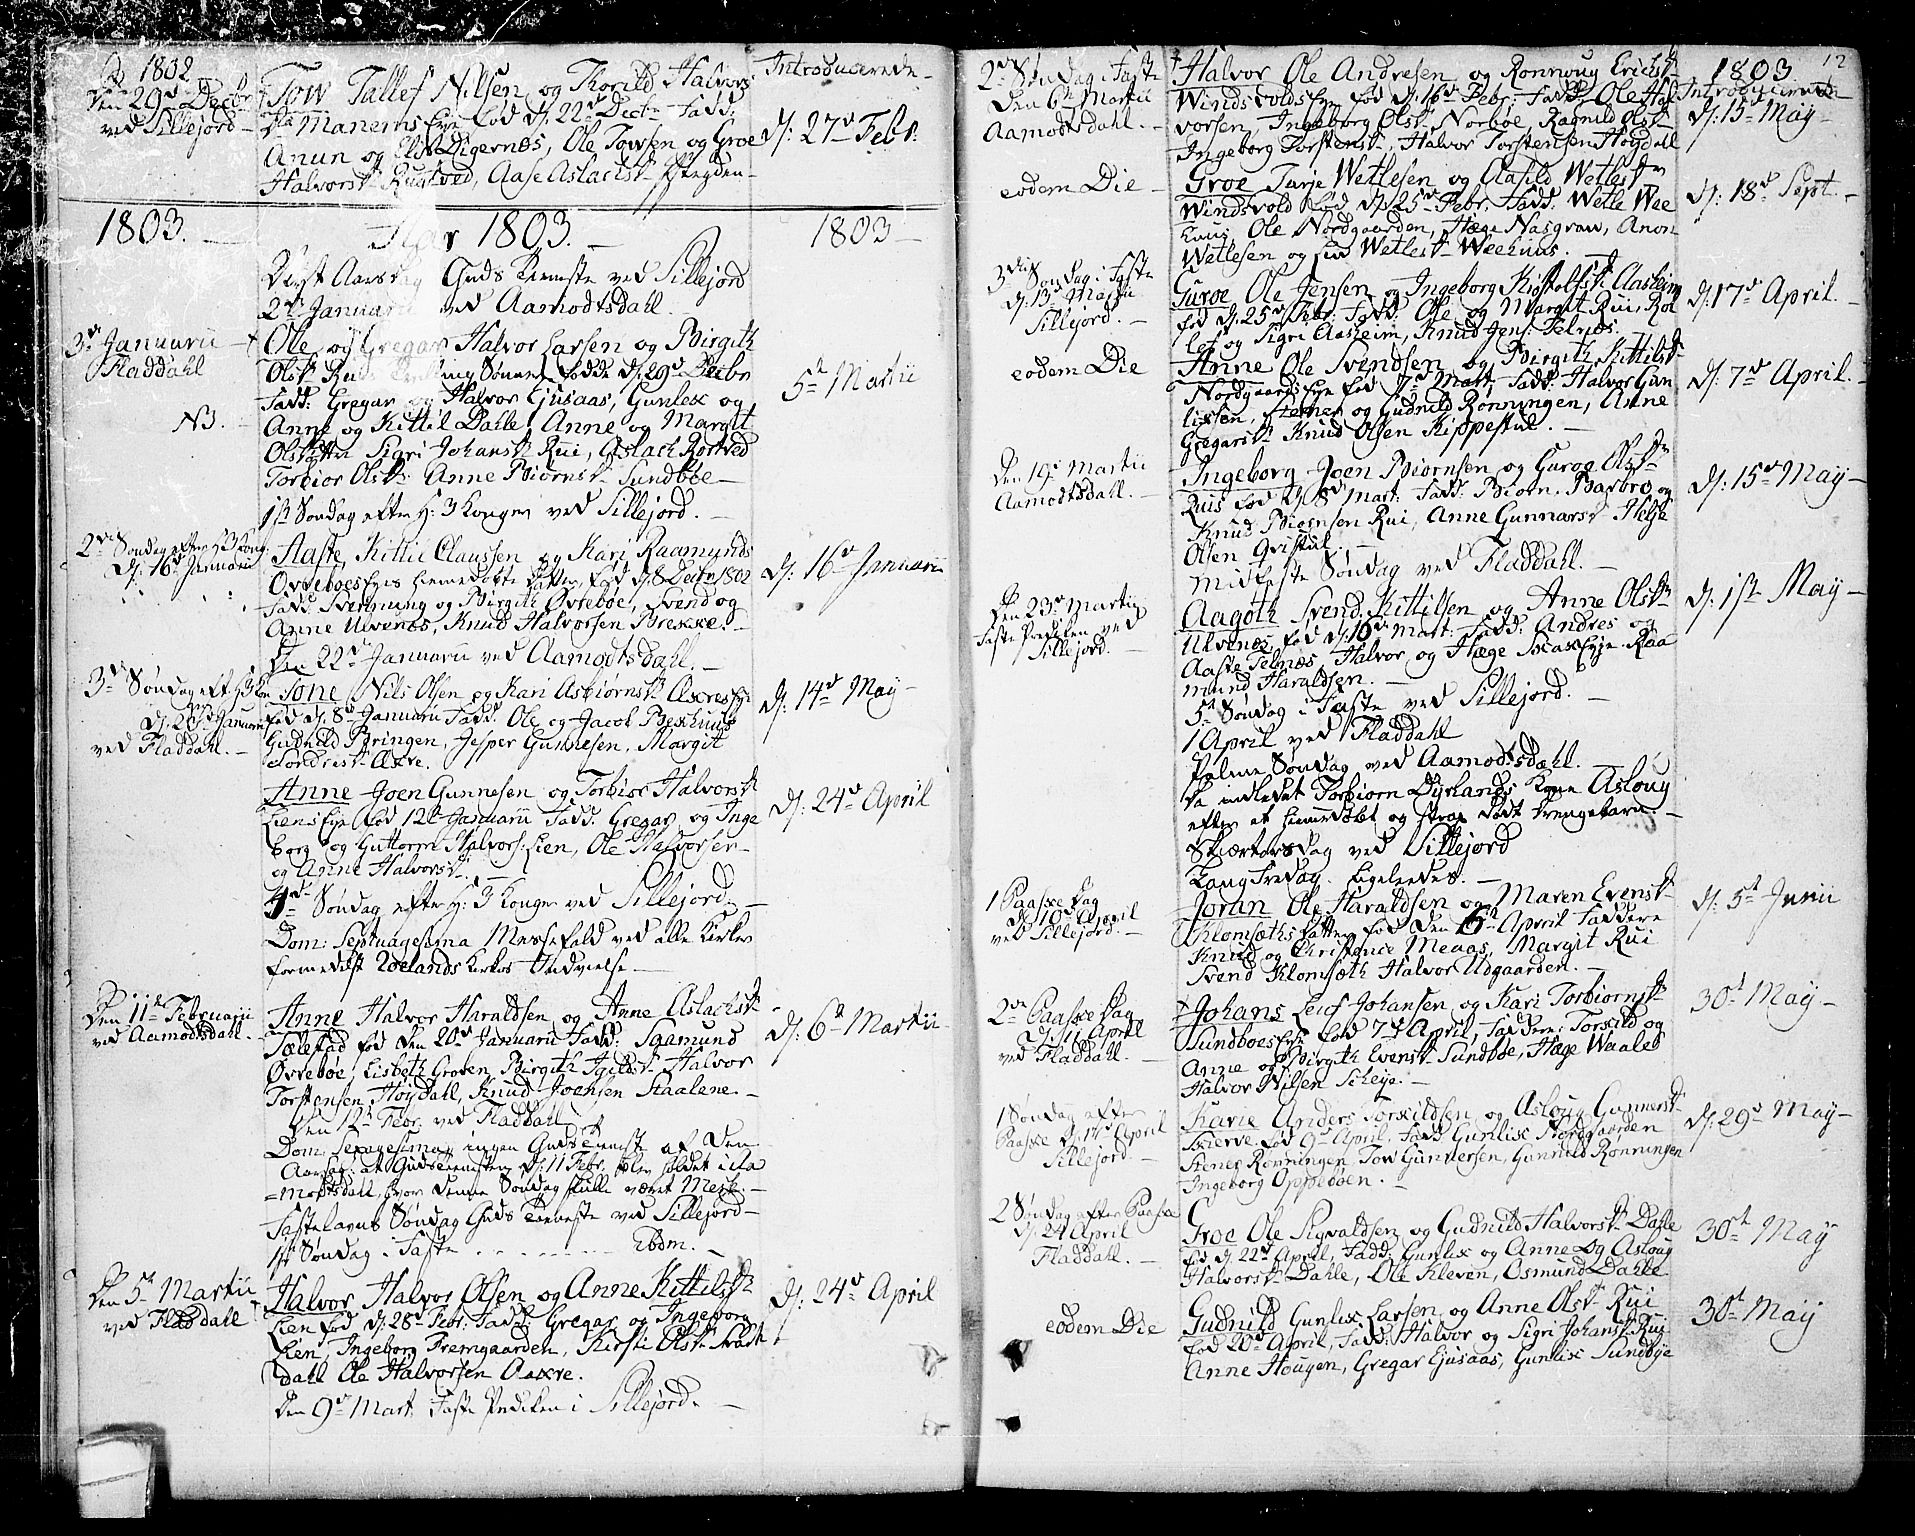 1802
Den 29de Decbr
ved Sillejord
Tow Tallef Nilsen og Thorild Halvors
Manems Eye fød d. 22de Decbr Fadd:
Anun og Digernes, Ole Towsen og Groe
Halvorsd. Rugtved, Aase Aslachsd.
Introducerede
d: 27de Febr:
1803.
Aar 1803.
1803
Aarsdag Guds Tieneste ved Sillejord
2de Januarii ved Aamodtsdahl.
3de Januarii
Fladdahl
NB.
Ole og Gregar Halvor Larsen og Birgith
Olsd. Ruis Tvilling Sønner fødde d. 29de Decbr
Fadd: Gregar og Halvor Ejusaas, Gunlex og
Anne og Kittil Dahle, Anne og Margit
Olsdøtter Sigri Johansd. Rui, Aslach Rortved
Torbior Olsd: Anne Biørnsd. Sundbøe
5te Martii
1ste Søndag efter H: 3 Konger ved Sillejord.
2de Søndag efter H3 Kong.
d: 16de Januarii
Aaste Kittil Claussen og Kari Raamunds
Øvrebøes Eyes hiemedøbte Datter fød d. 8 Decbr 1802
Fadd og Birgith Øvrebøe, Svend og
Anne Ulvenes, Knud Halvorsen Brekke.
d: 16de Januarii
Den 22de Januarii ved Aamodtsdahl.
3de Søndag eft H3 Kon
Januarii
ved Fladdahl.
Tone Nils Olsen og Kari Asbiørnsd.
fød d. 8de Januarii Fadd. Ole og Jacob
Gudnild Bringen, Jesper Gunnesen, Margit
Tondresd. Axre.
d: 14de May
Anne Joen Gunnesen og Torbior Halvorsd.
Liens Eye fød 12te Januarii Fadd: Gregar og Inge
borg og Guttorm Halvors: Lien, Ole Halvorsen
og Anne Halvorsd.
d: 24de April
4de Søndag efter H: 3 Konger ved Sillejord.
Dom: Septuagesima Messefald ved alle Kirker
formedelst Kirkes Indvielse.
Den 11te Februarii
ved Aamodtsdahl.
Anne Halvor Haraldsen og Anne Aslachsd.
fød den 20de Januarii Fadd: Saamund
Øvrebøe, Lisbeth Groven, Birgith Halvor
Torstensen Høydahl, Knud Joensen Staalene.
d: 6te Martii
Den 12te Febr. ved Fladdahl
Dom: Sexagesima, ingen Gudstieneste af den
Aarsag at Gudstienesten d: 11 Febr. blev holdet i Aa
=modtsdahl, hvor denne Søndag skulle været Messe.
Fastelavns Søndag Guds Tieneste ved Sillejord
1ste Søndag i Faste Ebdm.
Den 5te Martii
ved Fladdahl
Halvor Halvor Olsen og Anne Kittilsd.
Lien fød d. 28de Febr: Fadd: Gregar og Ingeborg
Lien, Ingeborg Fremgaarden, Kirsti Olsd.
dahl Ole Halvorsen Aaxre.
d: 24de April
Den 9de Mart. Faste Prediken i Sillejord.
12
2den Søndag i Faste
Den 6te Martii
Aamodtsdahl.
Halvor Ole Andresen og Ronnoug Erichsd.
Windsvolds Eye fød d. 16de Febr: Fadd: Ole Hal
vorsen, Ingeborg Olsd. Norbøe, Ragnild Olsd.
Ingeborg Torstensd. Halvor Torstensen Høydall
1803
Introducerede
d: 15de May
eodem Die
Groe Tarje Wetlesen og Aasild Wetlesd.
Windsvold fød d. 25de Febr. Fadd: Wetle Wee
huus, Ole Nordgaarden, Hæge Nasgraw, Anon
Wetlesen og Wetlesd. Weehuus.
d: 18de Sept.
3die Søndag i Faste
d. 13de Martii
Sillejord.
Guroe Ole Jensen og Ingeborg Aasheim
fød d. 25de Febr: Fadd: Ole og Margit Rui, Rol
lef og Sigri Aasheim, Knud Jens: Felnes.
d: 17de April.
eodem Die
Anne Ole Svendsen og Birgith Kittilsd.
Nordgaards Eye fød 7de Mart. Fadd: Halvor Gun
lixsen, Stener og Gudnild Rønningen, Anne
Gregarsd. Knud Olsen Kippestul.
d: 7de April.
Den 19de Martii
Aamodtsdahl.
Ingeborg Joen Biørnsen og Guroe Olsd.
Ruis fød d. 8de Mart: Fadd: Biørn, Barbro og
Knud Biørnsen Rui, Anne Gunnarsd. Helje
Olsen Qvistul.
d: 15de May
Midfaste Søndag ved Fladdahl.
Den 23de Martii
Faste Prediken ved
Sillejord.
Aagoth Svend Kittilsen og Anne Olsd.
Ulvenes fød d. 10de Mart: Fadd: Andres og
Aaste Felnes, Halvor og Hæge Raa
mund Haraldsen.
d: 1ste May
5te Søndag i Faste ved Sillejord.
1 April ved Fladdahl
Palme Søndag ved Aamodtsdahl.
da indledet Torbiørn Dyrlands Kone Asloug
efter et hiemedøbt og strax dødt Drengebarn.
Skiærtorsdag ved Sillejord
Langfredag. Ligeledes.
1 Paaske Dag
d. 10de April
ved Sillejord.
Joran Ole Haraldsen og Maren Evensd.
Klomsets Datter fød den 6te April Faddere
Knud og Christence Meaas, Margit Rui
Svend Klomseth Halvor Udgaarden.
d: 5te Junii
2den Paaske Dag
d. 11 April
ved Fladdahl.
Johans Leif Johansen og Kari Torbiørnsd.
Sundboes Eye fød 7de April, Faddere: Torkild og
Anne og Birgith Evensd. Sundbøe, Hæge Waales
Halvor Nilsen Scheje.
30te May
1 Søndag efter
Paaske d. 17de April
Sillejord.
Karie Anders Torkildsen og Asloug Gunnersd.
Skierve fød 9de April. Fadd Gunlix Nordgaarden
Stener Rønningen Tow Gunnersen, Gunnild Rønningen
Ingeborg Oppebøen.
d: 29de May
2 Søndag efter Paaske
d. 24 April
Fladdahl.
Groe Ole Sigvaldsen og Gudnild Halvorsd. Dahle
fød d. 22de April, Fadd: Gunlix og Anne og Asloug
Halvorsd. Dahle, Ole Kleven, Osmund Dahle
30te May
eodem Die
Gudnild Gunlix Larsen og Anne Olsd. Rui
fød 20de April, Fadd: Halvor og Sigri Johansd. Rui
Anne Hougen, Gregar Ejusaas, Gunlix Sundbye
30te May